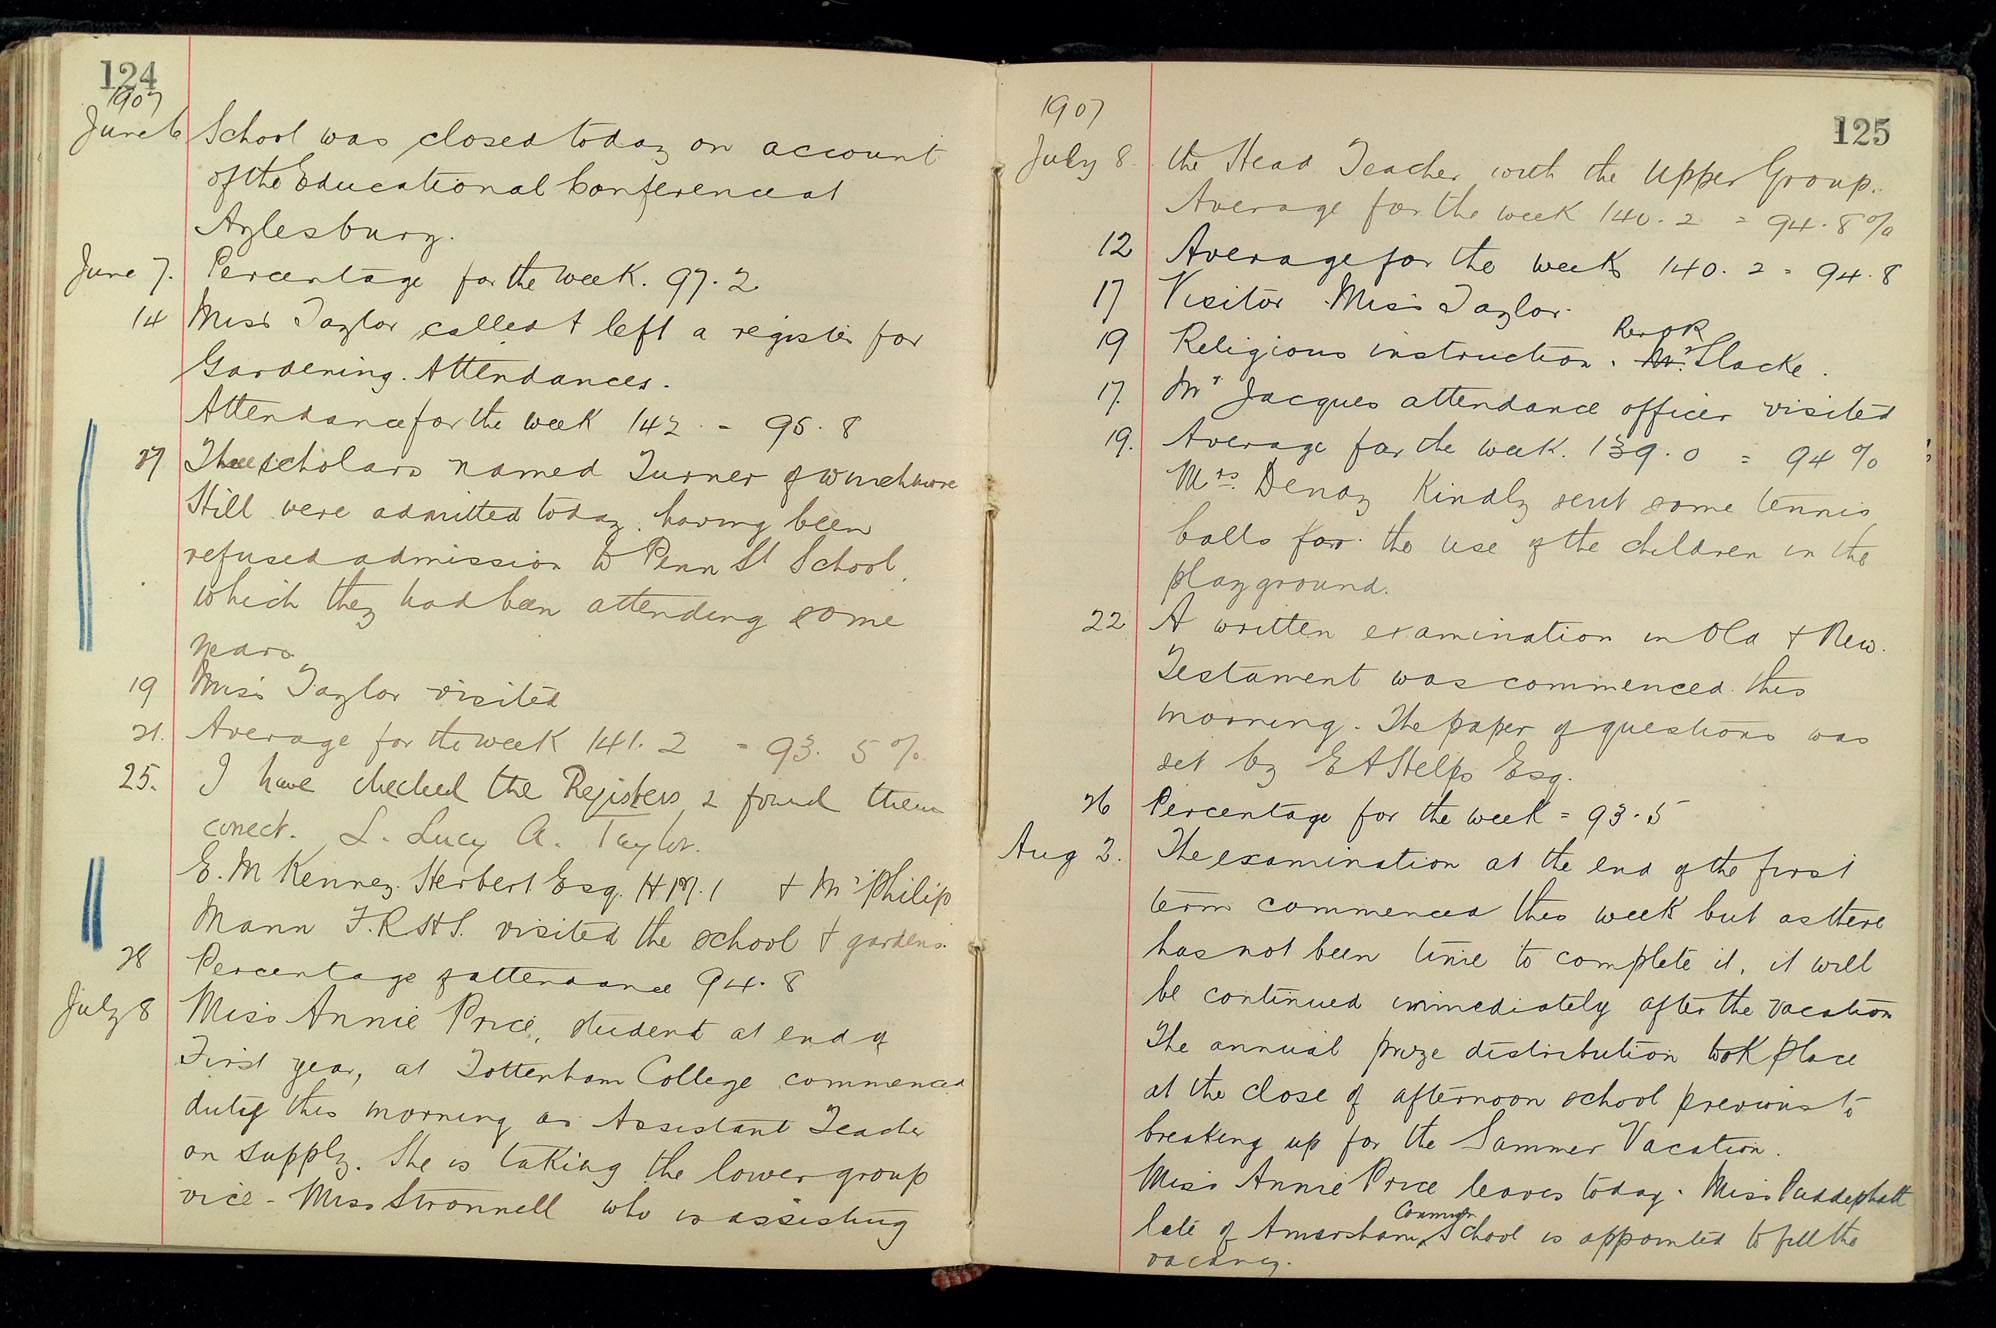 124
1907
June 6 School was closed today on account
of the Educational Conference at
Aylesbury.
June 7. Percentage for the week. 97.2
14 Miss Taylor called & left a register for
Gardening. Attendances.
Attendance for the week 142 - 95.8
Three scholars named Turner of Winchmore
Hill were admitted today, having been
refused admission to Penn St School,
which they had been attending some
years
19 Miss Taylor visited
21. Average for the week 141.2 = 93.5%
25. I have checked the Registers & found them
correct. L. Lucy A. Taylor.
E. M Kenney. Herbert Esq. H.M.I & Mr Philip
Mann F.R.H.S. visited the school & gardens.
28 Percentage of attendance 94.8
July 8 Miss Annie Price, student at end of
First year, at Tottenham College commenced
duty this morning as Assistant Teacher
on Supply. She is taking the lower group
vice - Miss Stronnell who is assisting
125
1907
July 8. the Head Teacher with the Upper Group.
Average for the week 140.2 = 94.8%
12 Average for the week 140.2 = 94.8
17 Visitor Miss Taylor.
Rev O R
19 Religious instruction. Mr. Slacke.
17. Mr Jacques attendance officer visited
19. Average for the week. 139.0 = 94%
Mrs. Denay Kindly sent some tennis
balls for the use of the children in the
playground.
22 A written examination in Old & New.
Testament was commenced this
morning. The paper of questions was
set by E A Helps Esq.
26 Percentage for the week = 93.5
Aug 2. The examination at the end of the first
term commenced this week but as there
has not been time to complete it, it will
be continued immediately after the vacation
The annual prize distribution took place
at the close of afternoon school previous to
breaking up for the Summer Vacation.
Miss Annie Price leaves today. Miss Puddephatt
late of Amersham Common School is appointed to fill the
vacancy.